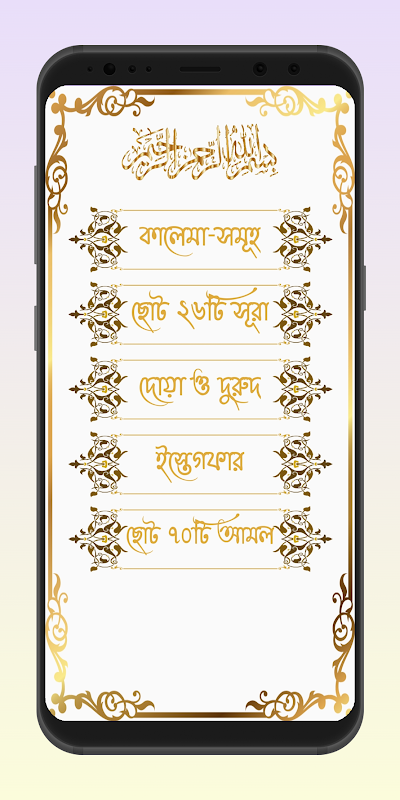 بسم الله الرحمن الرحيم
কালেমা-সমূহ
ছোট ২৬টি সূরা
দোয়া ও দুরুদ
ইস্তেগফার
ছোট ৭০টি আমল